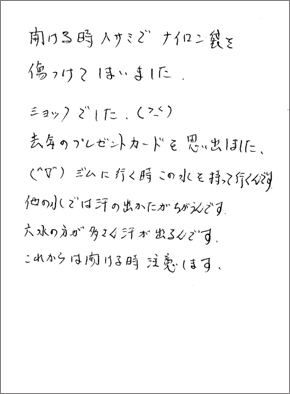 開ける時ハサミでナイロン袋を
傷つけてしまいました.
ショックでした.(>_<)
去年のプレゼントカードを思い出しました、
(^∇^) ジムに行く時この水を持って行くんです
他の水では汗の出かたがちがうんです.
六水の方が多く汗が出るんです.
これからは開ける時注意します.